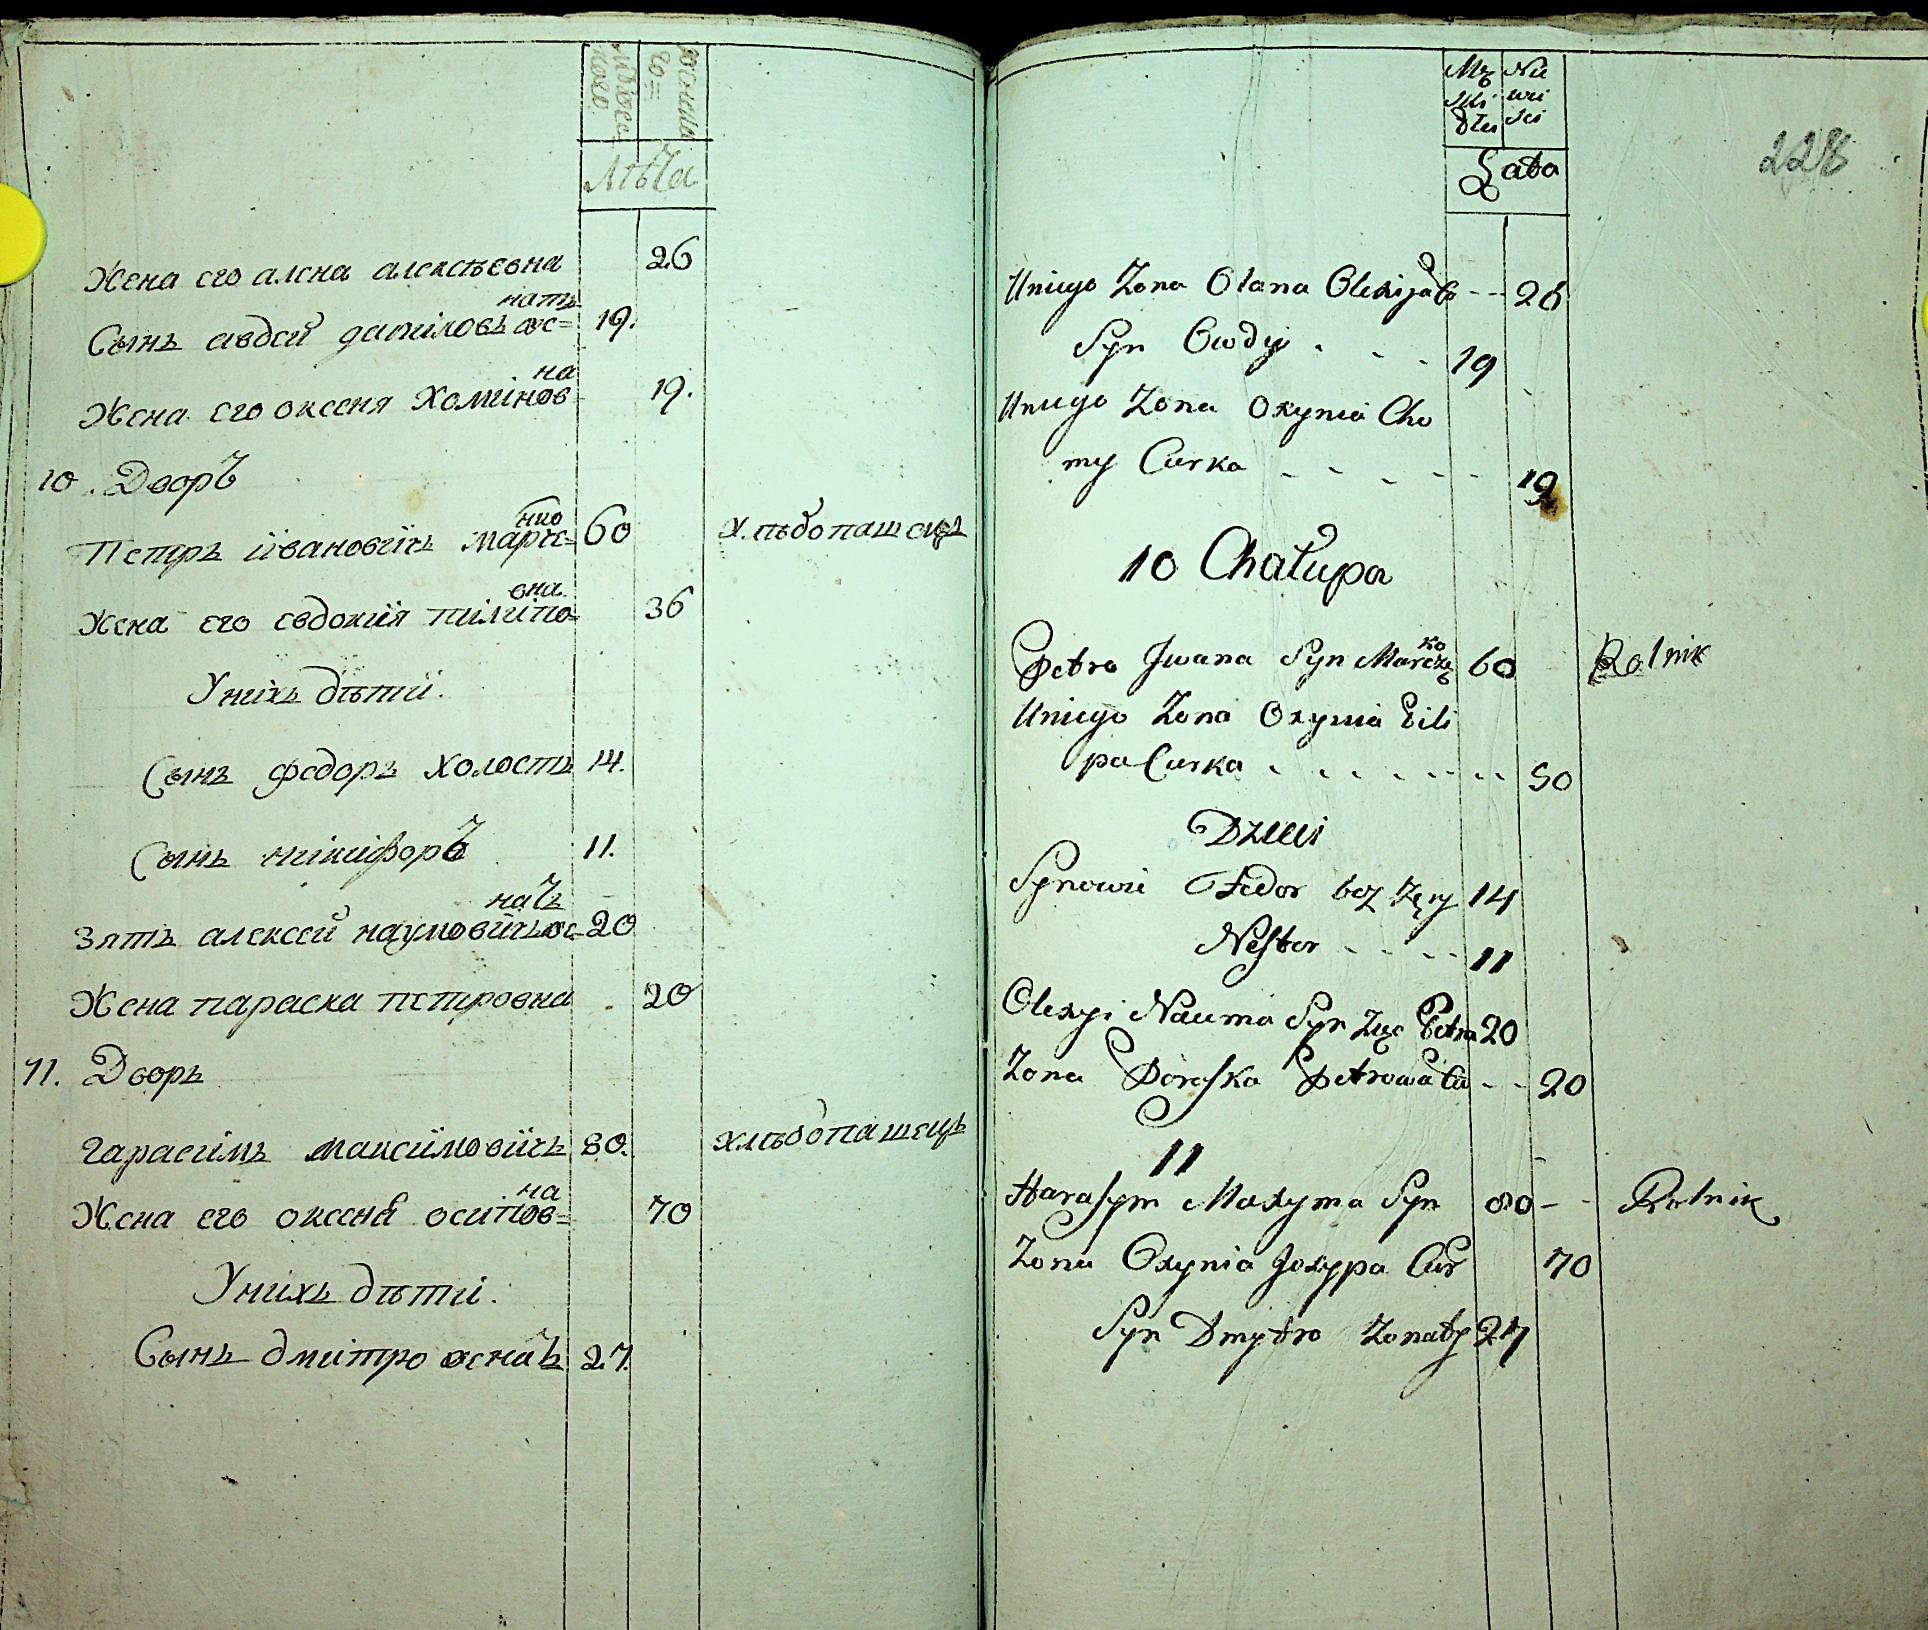 мужеска
пола
женска
го=
Лѣта
Жена его алена алексѣевна 26
Сынъ авдей даниловъ же=натъ 19.
Жена его оксеня Хоминов на 19.
10. Дворъ
Петръ ивановичъ марче=нко 60 хлѣбопашецъ
Жена его евдокия пилипо=вна 36
У нихъ дѣти.
Сынъ федоръ холостъ 14.
Сынъ никифоръ 11.
Зять алексей наумовичъ же=натъ 20
Жена параска петровна 20
11. Дворъ
гарасимъ максимовичъ 80. хлѣбопашецъ
Жена его оксеня осипов=на 70
У нихъ дѣти.
Сынъ дмитро женатъ 27.
228
Lata
Uniego Zona Olana Olexijats -- 26
Syn Owdij . - - 19
Uniego Zona Oxynia Cho
my Curka - - - - - 19
10 Chałupa
Petro Jwana Syn Marczęko 60 Rolnik
Uniego Zona Oxynia Pili
pa Curka . . . . - - . . 50
Dzieci
Synowie Fedor bez żęny 14
Nestor - - - - 11
Olexyi Nauma Syn Zięc Petra 20
Zona Paraska Petrowa Cu -- 20
11
Harasym Maxyma Syn 80 - - Rolnik
Zona Oxynia Joxyppa Cur 70
Syn Dmytro Zonaty 27